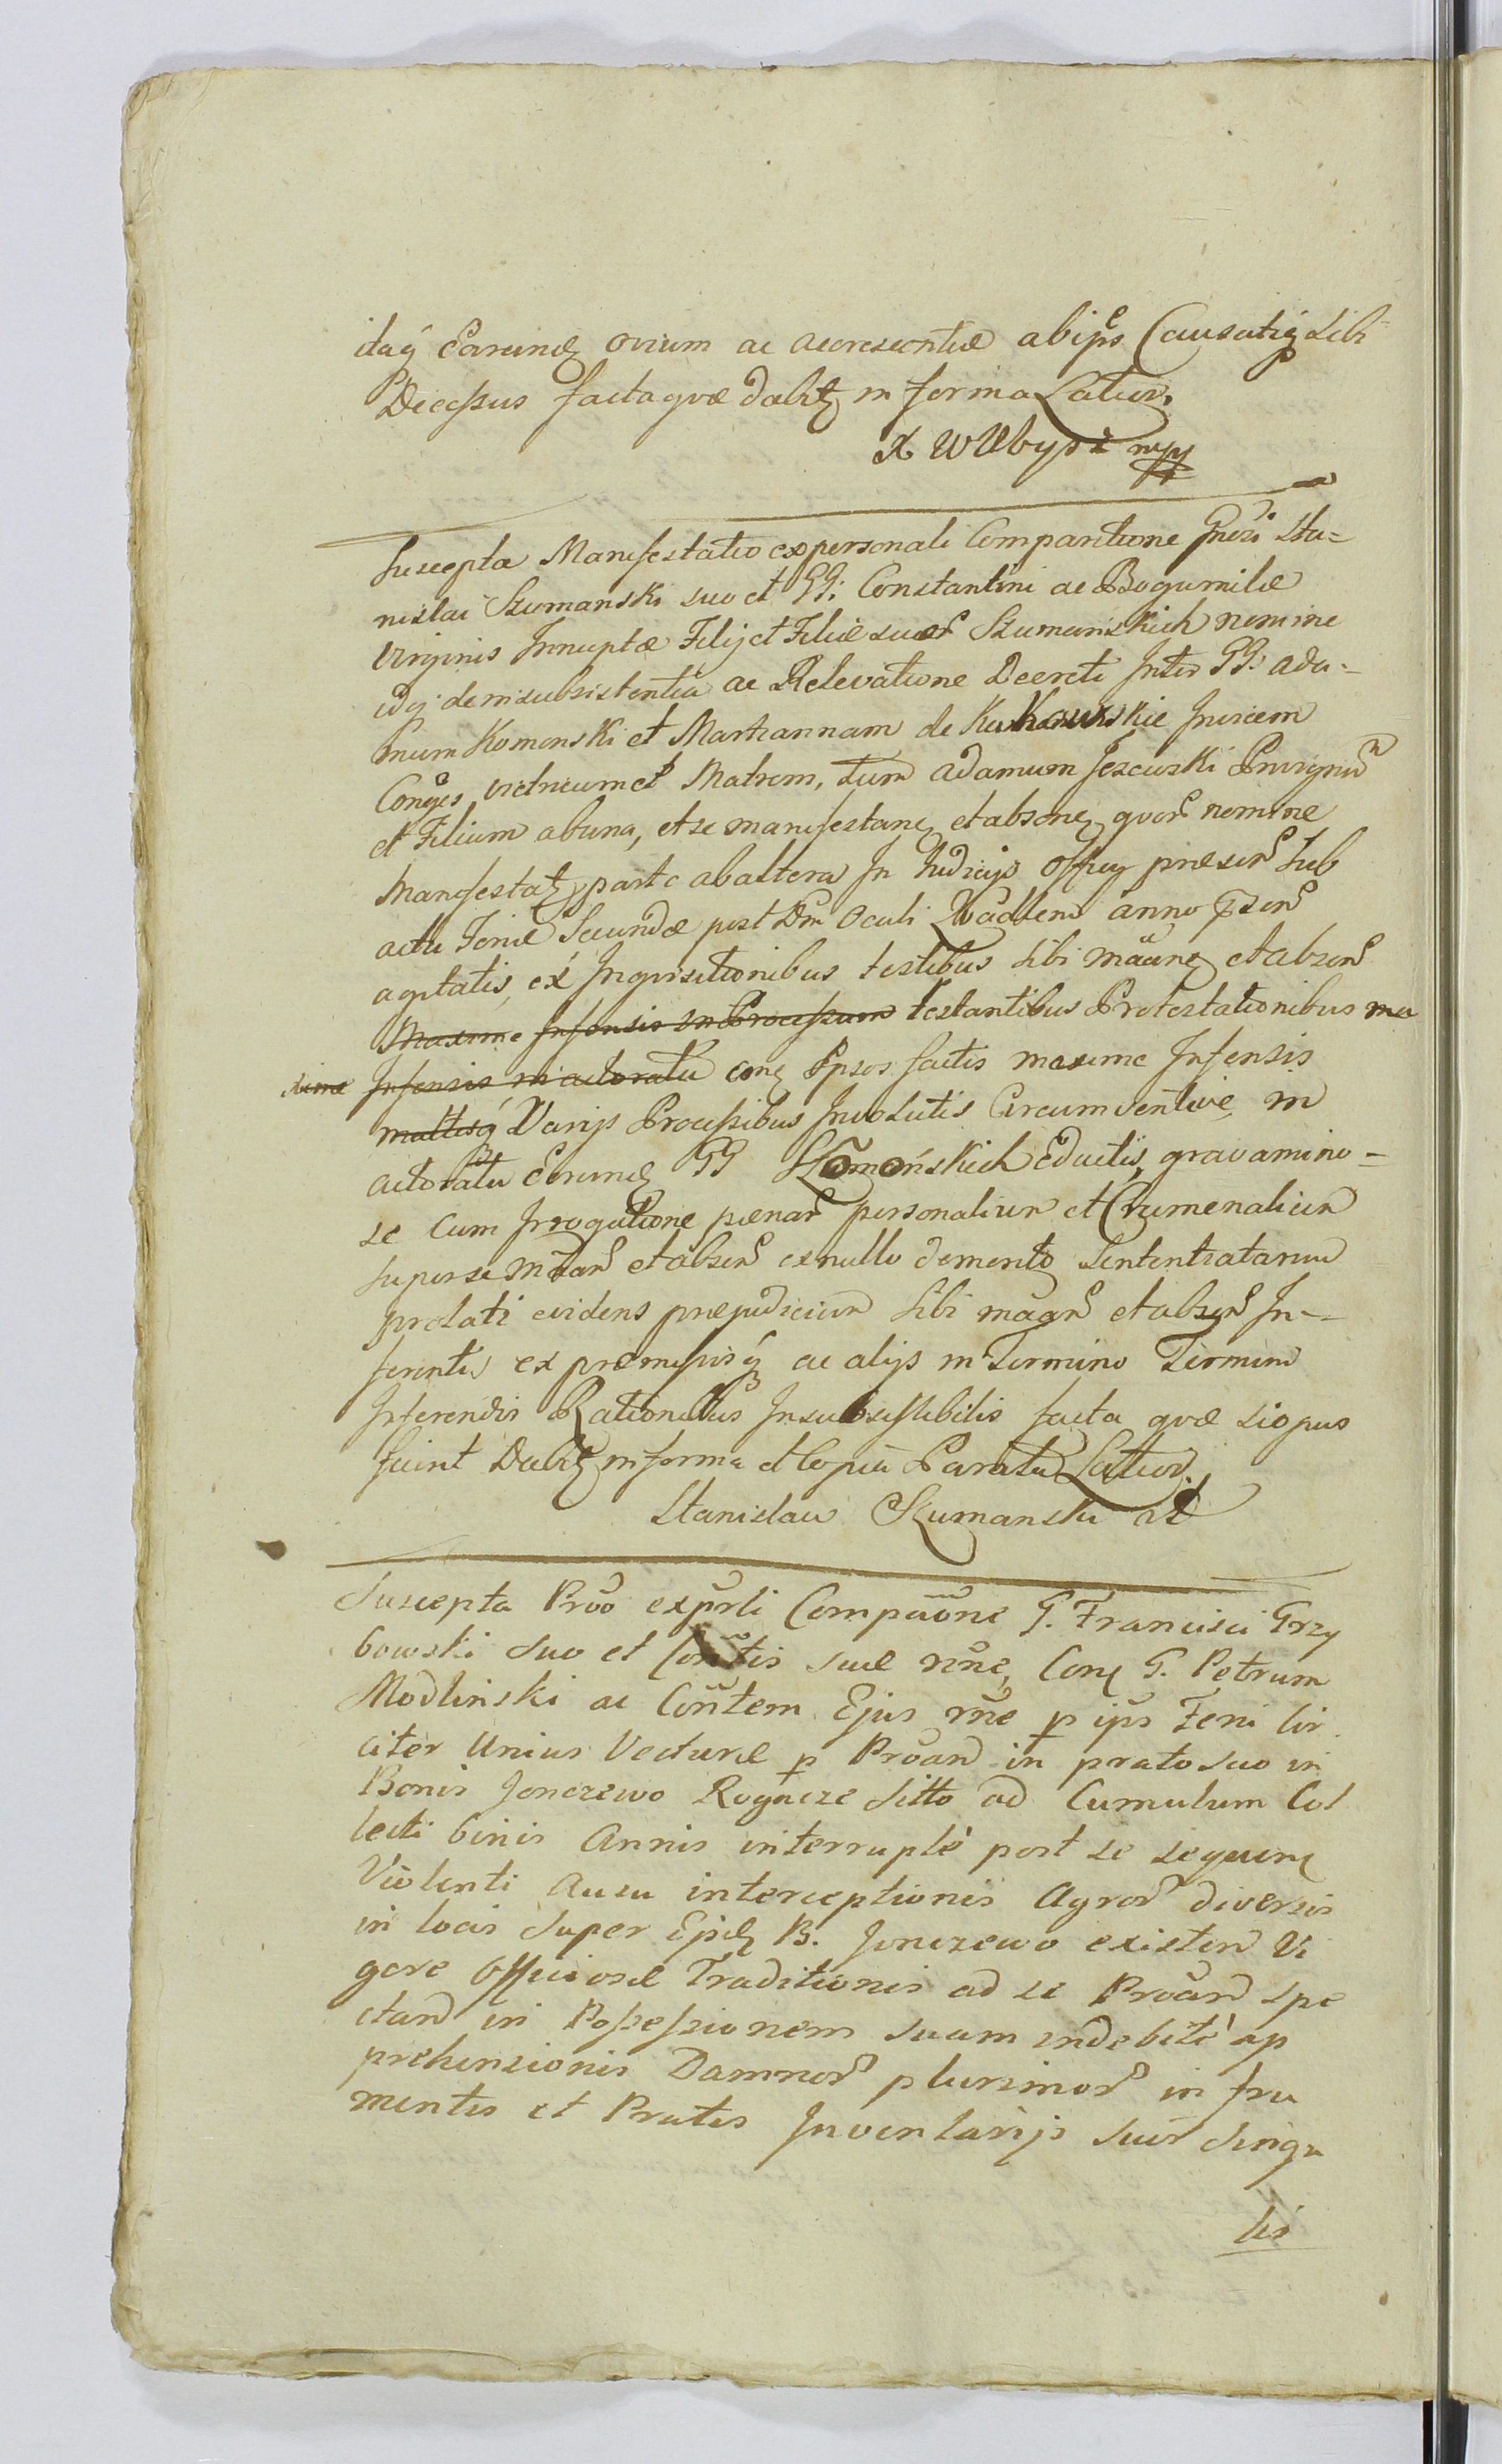 itaq́ Earund ovium ac accrescentiæ ab ipsis Causatiq Sibi
Decessus facta quæ dabit in forma Latiori
X W Wbysz mpp
Suscepta Manifestatio ex personali Comparitione Gnesi Sta-
nislai Szumanski suo et GG: Constantini ac Bogumilæ
Virginis Innuptæ Filij et Filiæ suar Szumanskich nomine
idq de insubsistentia ac Relevatione Decreti Inter GG: Ada-
mum Komonski et Mariannam de Invicem
Conges vitricum et Matrem, tum Adamum Jezewski Privignũ
et Filium ab una, et se manifestanę et absonę quor nomine
Manifestat parte ab altera In Judicijs Officij præsen Sub
actu Feriæ Secundæ post Dm Oculi Quadlem anno pzen
agitatis, ex Inquisitionibus testibus Sibi mãane et absen
Maxime Infensis in Processum testantibus Protestationibus ma
xime Infensis in actoratu conę Ipsos factis maxime Infensis
multisq́ Varijs Processibus Involutis Circumventive in
actoratu Eorund GG Komońskich Eductis, gravamino-
se cum Irrogatione pœnar personalium et Crumenalium
super se mãan et absen ex nullo demerito Sententiatarum
prolati evidens præjudicium Sibi mãan et absen In-
ferentis ex præmissisq́ ac alijs in Termino Termini
Inferendis Rationibus Insubsistibilis facta quæ si opus
fuint Dabit in forma et Copia Parata Latiori
Stanislaw Szumanski
Suscepta Prõo ex p̃rli Compãone G. Francisci Grzy
bowski suo et Con̄tis suæ nõne, Conę G. Petrum
Modlinski ac Con̄tem Ejus rõne p ips Feni cir
citer Unius Vecturæ p Prõan in prato suo in
Bonis Jonczewo Rogacze sitto ad Cumulum Col
lecti binis Annis interruptè post se sequenę
Violenti Ausu interceptionis Agror diversis
in locis super Ejsd B. Jonczewo existen Vi
gore Officiosæ Traditionis ad se Prõan spe
ctan in Possessionem suam indebitè ap
prehensionis Damnor plurimor in fru
mentis et Pratis Inventarijs suis singu
lis